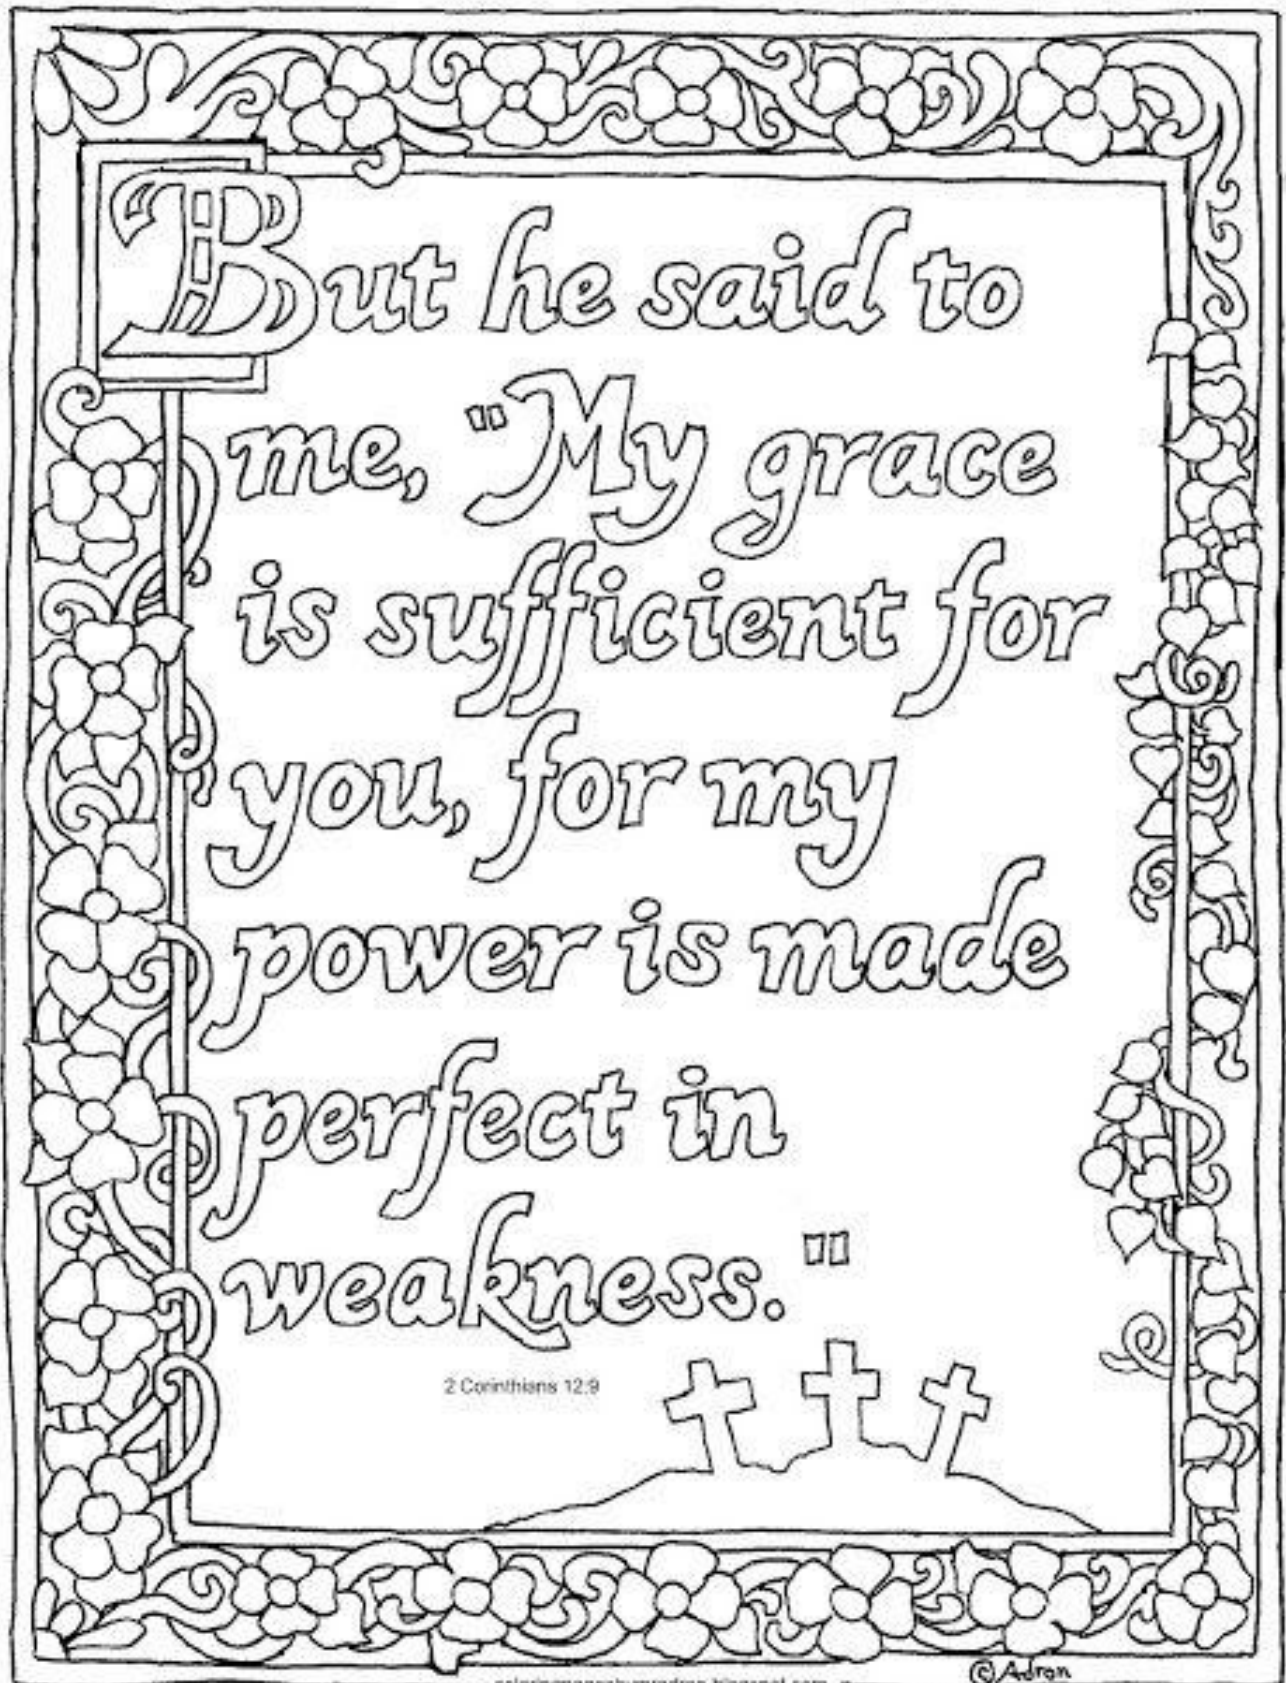 But he said to
me, "My grace
is sufficient for
you, for my
power is made
perfect in
weakness."
2 Corinthians 12:9
© Adron